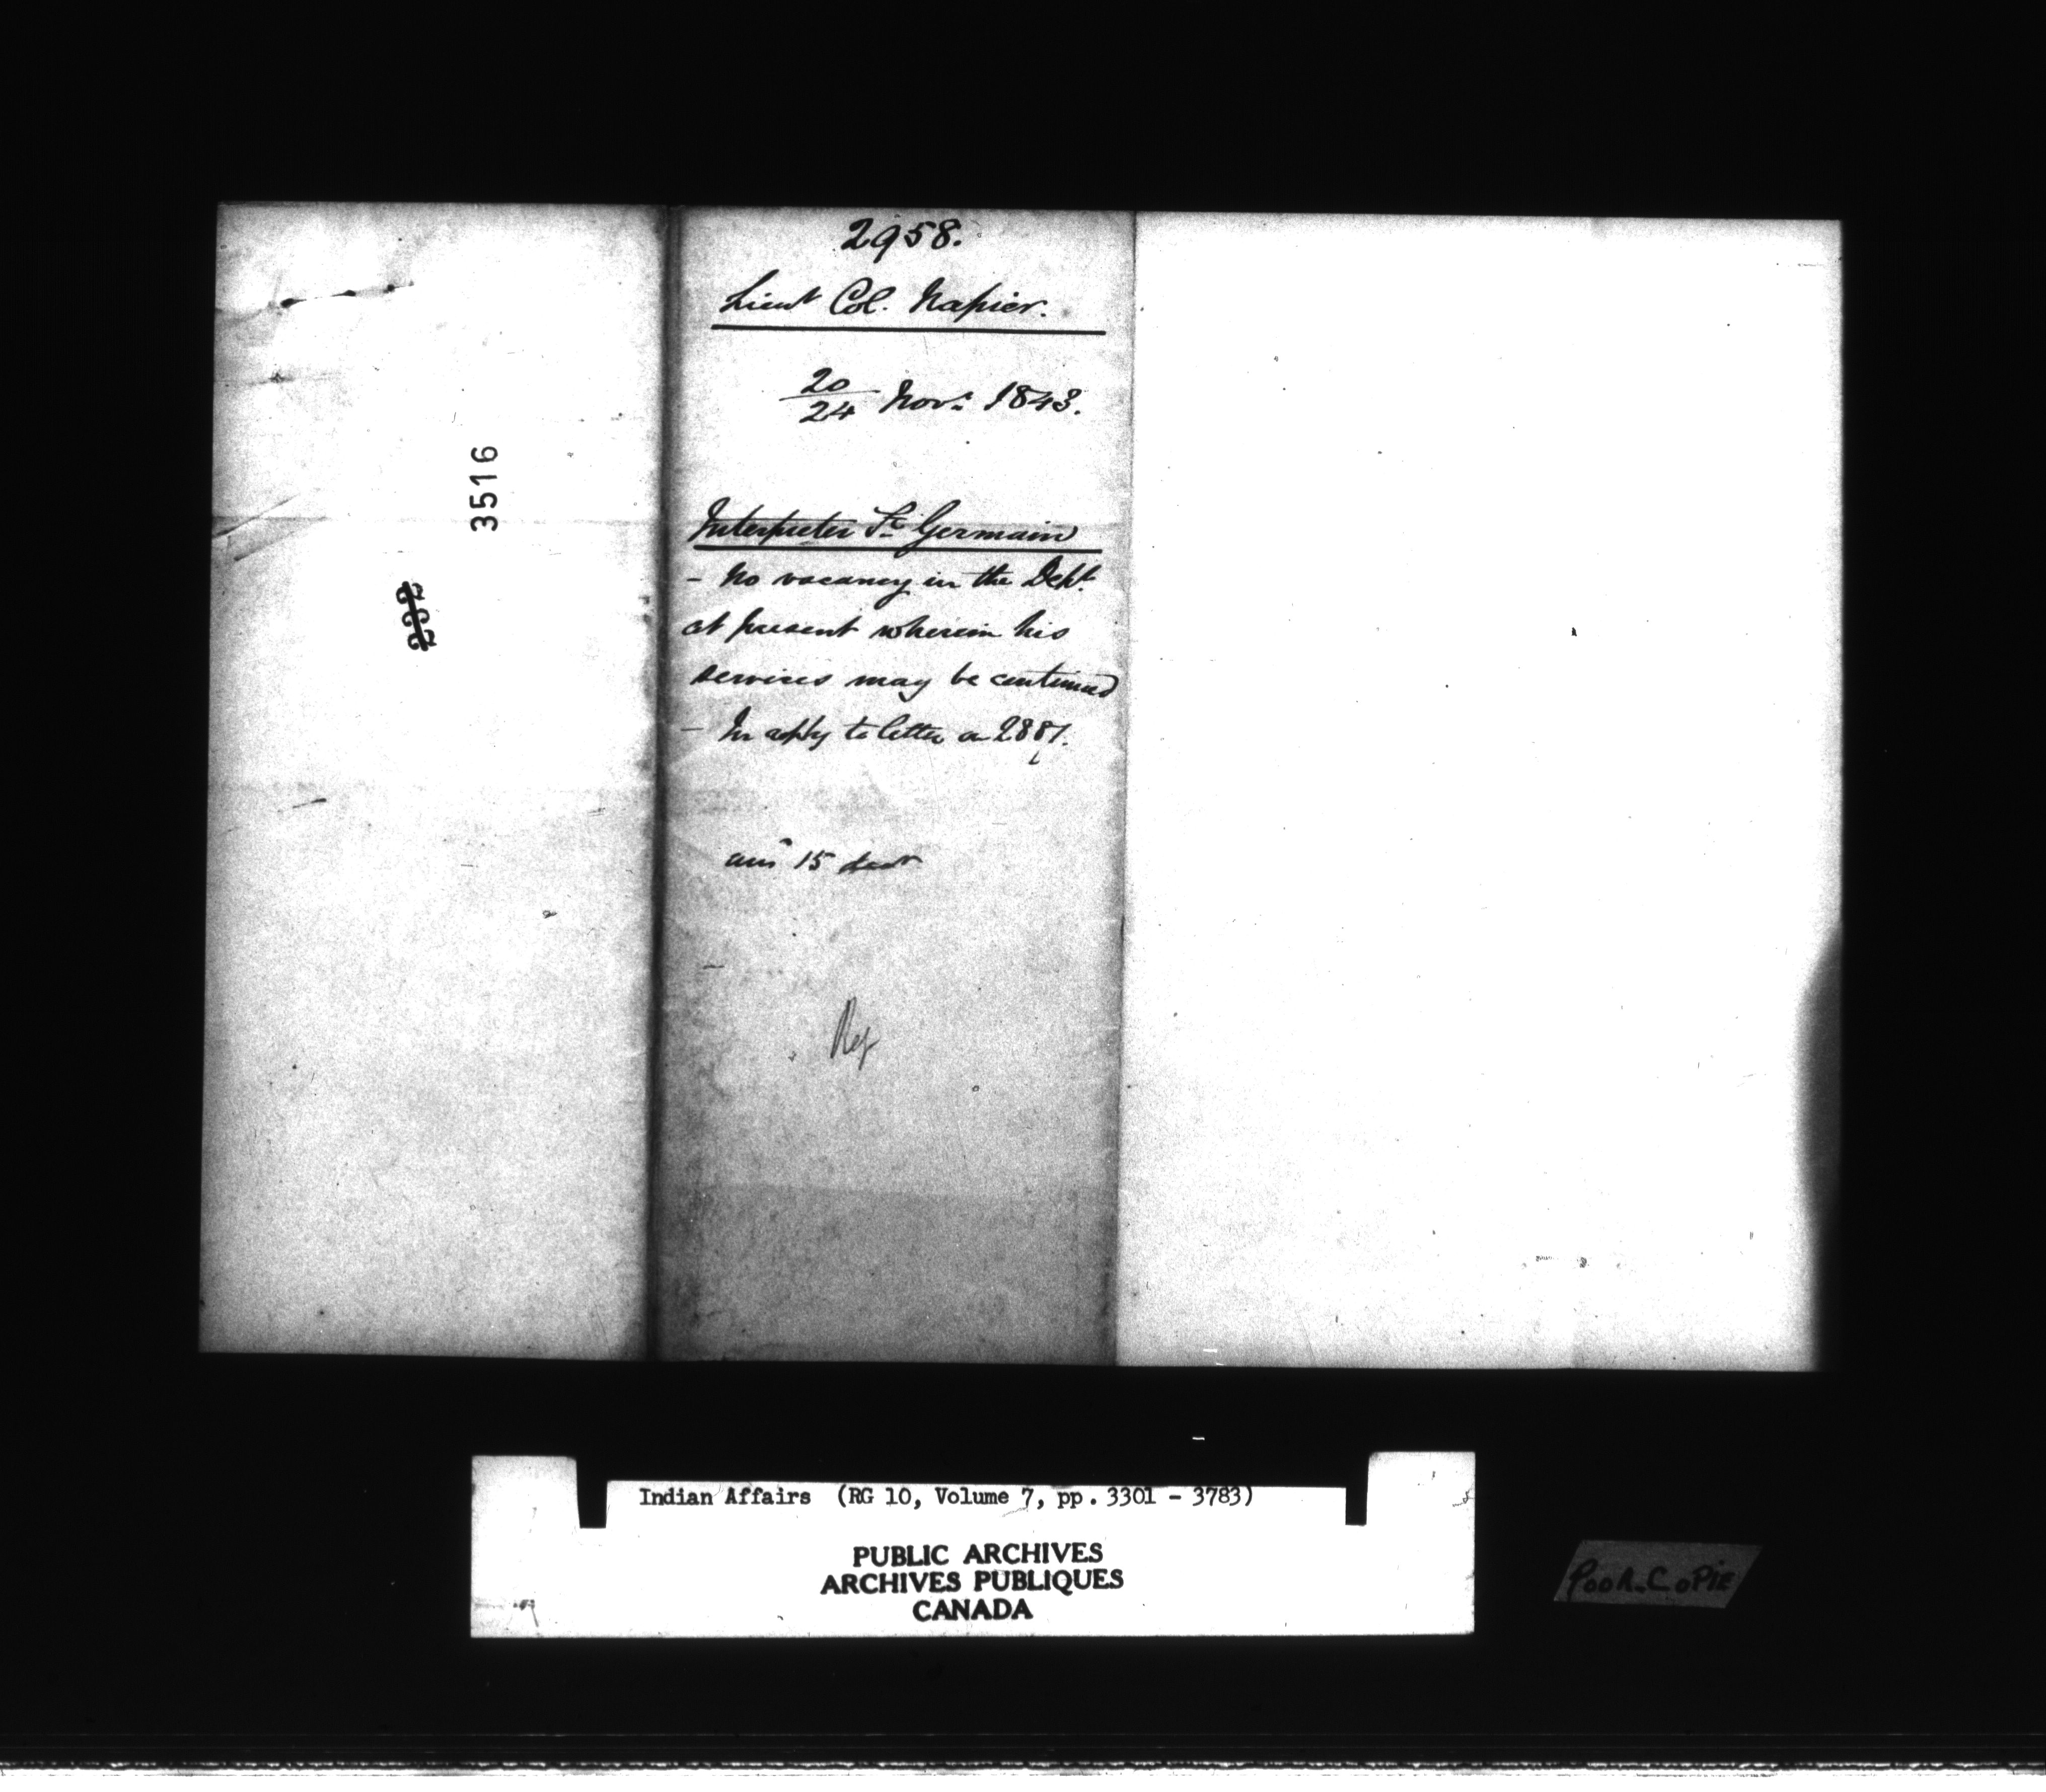 3516
232
2958.
Lieut Col. Napier.
20/24 Novr. 1843.
Interpreter St. Germain
- No vacancy in the Dept.
at present wherein his
services may be continued
- In reply to letter on 2881.
ansd 15
Reg
Indian Affairs (RG 10, Volume 7, pp. 3301 - 3783)
PUBLIC ARCHIVES
ARCHIVES PUBLIQUES
CANADA
POOR.COPIE